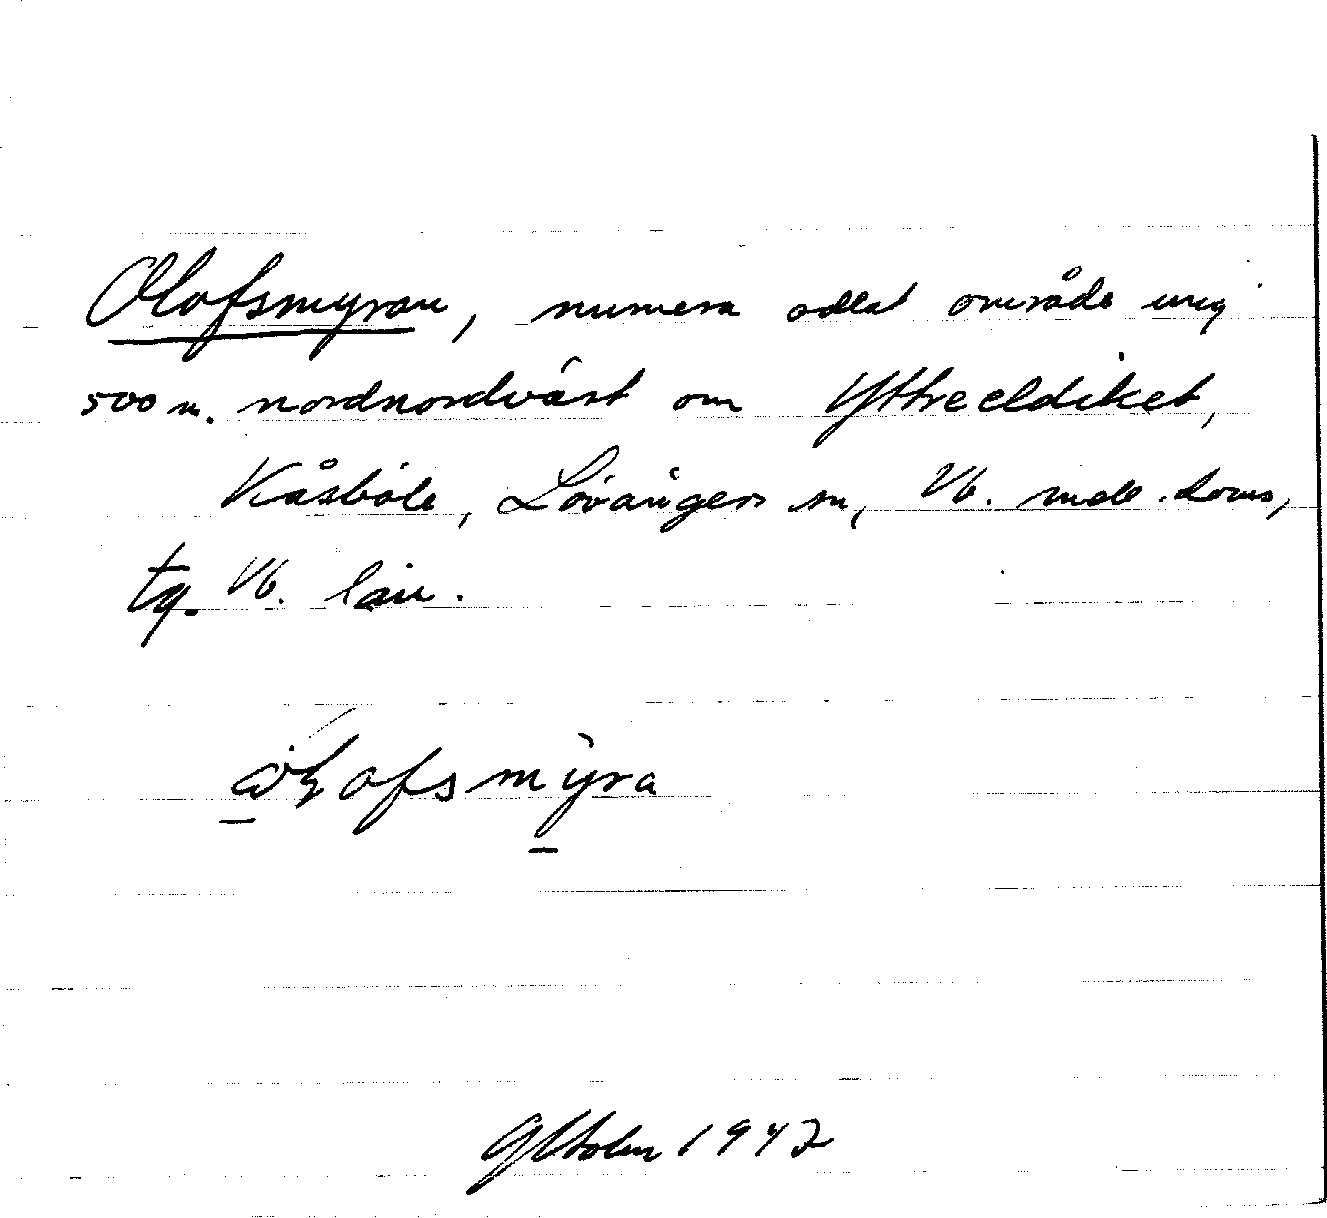 Olofsmyran, numera odlat område ung
500 m. nordnordväst om Yttreeldiket,
Kåsböle, Lövångers sn, Vb. mell. doms,
tg. Vb. län.
olofsmyra
GHolm 1942